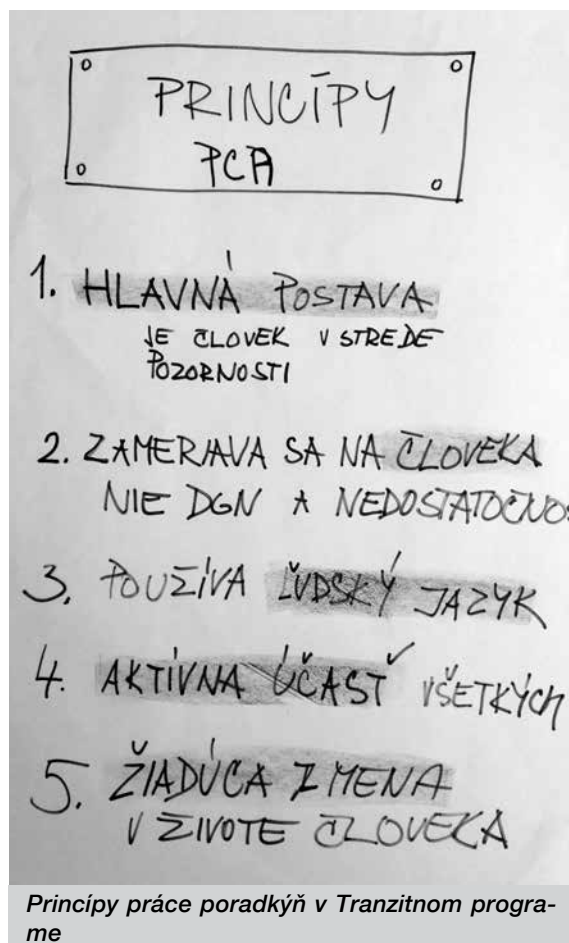 PRINCÍPY
PCA
1. HLAVNÁ POSTAVA
JE ČLOVEK V STREDE
POZORNOSTI
2. ZAMERIAVA SA NA ČLOVEKA
NIE DGN A NEDOSTATOČNOS
3. POUŽÍVA ĽUDSKÝ JAZYK
4. AKTÍVNA ÚČASŤ VŠETKÝCH
5. ŽIADÚCA ZMENA
V ŽIVOTE ČLOVEKA
Princípy práce poradkýň v Tranzitnom progra-
me